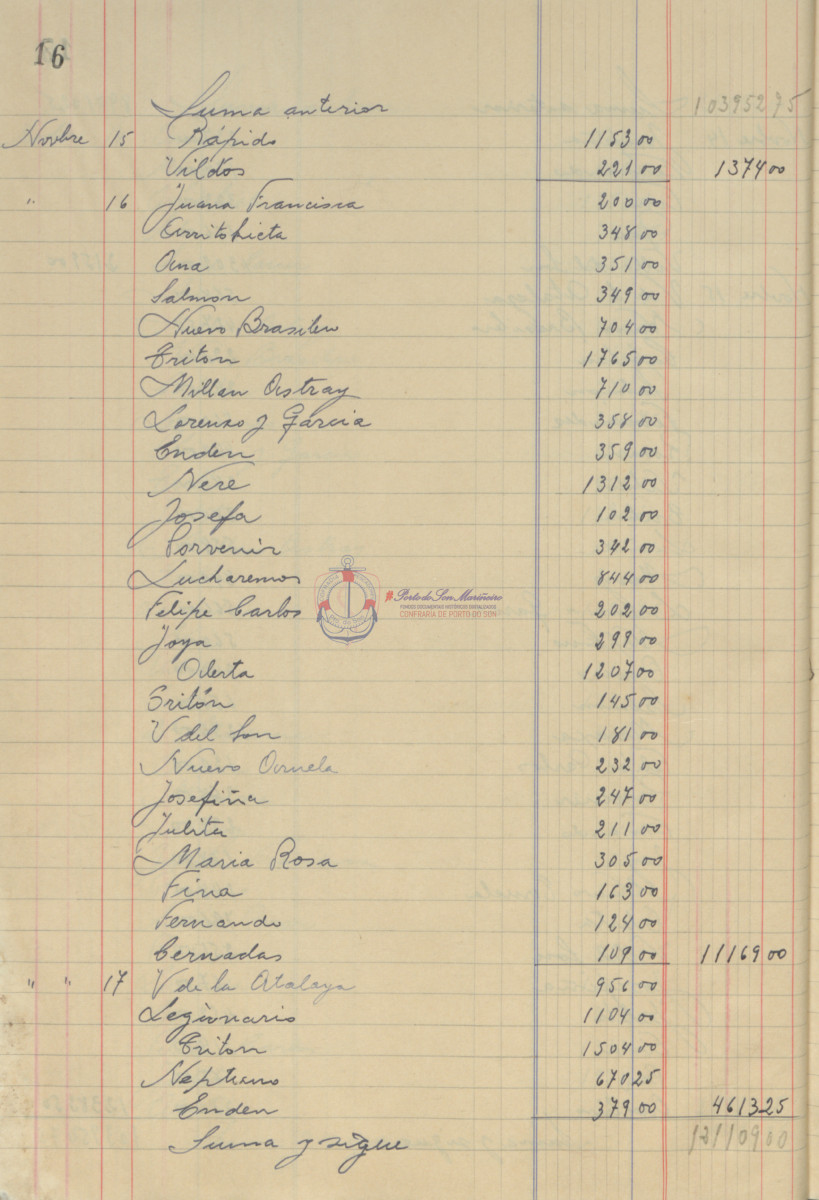 16
Suma anterior 103952 75
Novbre 15 Rápido 1153 00
Vildos 221 00 1374 00
" 16 Juana Francisca 200 00
348 00
Ana 351 00
Salmon 349 00
Nuevo Brasileu 704 00
Triton 1765 00
Millan Astray 710 00
Lorenzo y Garcia 358 00
Enden 359 00
Nere 1312 00
Josefa 102 00
Porvenir 342 00
Lucharemos 844 00
Felipe Carlos 202 00
Joya 299 00
1207 00
Gritón 145 00
V del Son 181 00
Nuevo 232 00
Josefiña 247 00
Julita 211 00
Maria Rosa 305 00
Fina 163 00
Fernando 124 00
Cernadas 109 00 11169 00
" " 17 V de la Atalaya 956 00
Legionario 1104 00
Triton 1504 00
Neptuno 670 25
Enden 379 00 4613 25
Suma y sigue 121109 00
Porto do Son Mariñeiro
FONDOS DOCUMENTAIS HISTÓRICOS DIXITALIZADOS
CONFRARIA DE PORTO DO SON